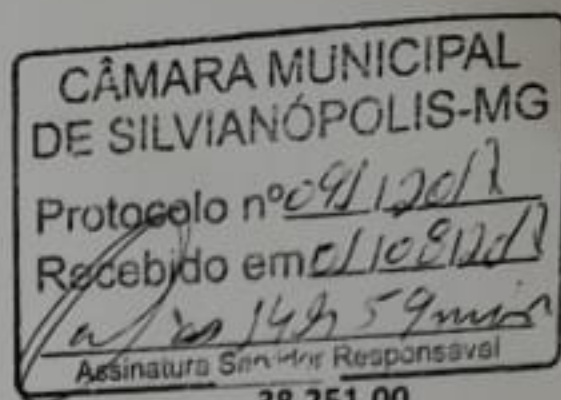 CÂMARA MUNICIPAL
DE SILVIANÓPOLIS-MG
Protocolo nº 091/201
Recebido em 01/08/201
às 14h 59min
Assinatura Servidor Responsavel
38.251,00